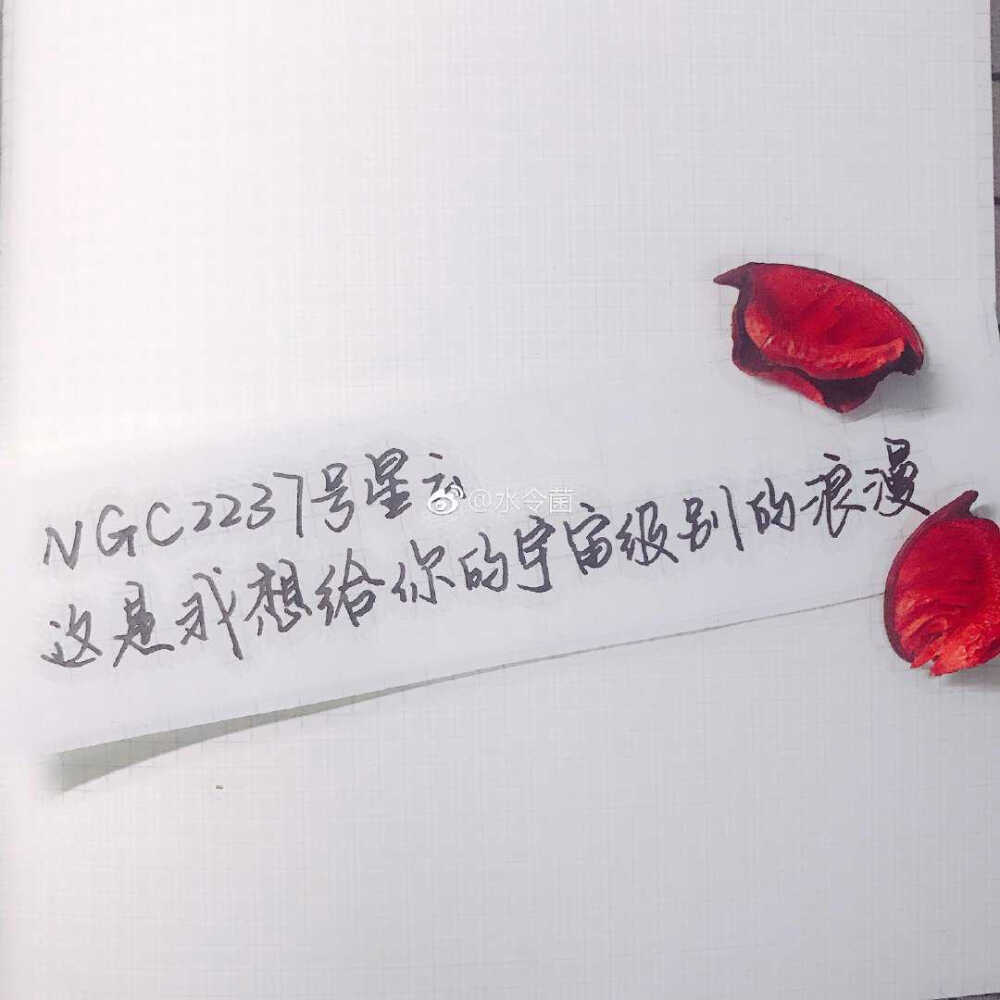 NGC2237号星云
@水令菌
这是我想给你的宇宙级别的浪漫